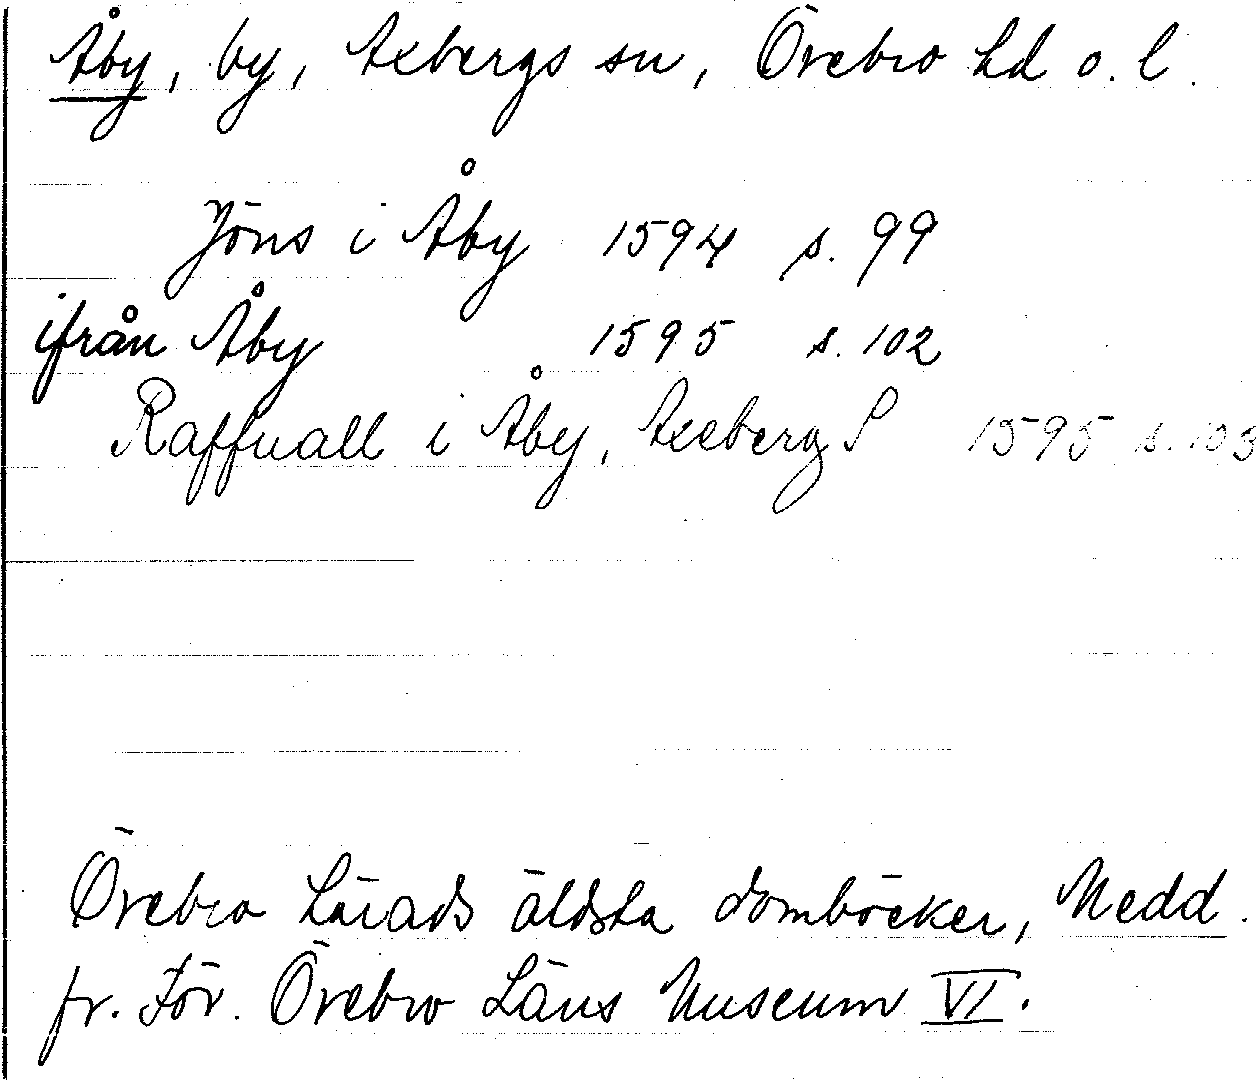 Åby, by, Axbergs sn, Örebro hd o. l.
Jöns i Åby 1594 s. 99
ifrån Åby 1595 s. 102
Raffuall i Åby, Axeberg S 1595 s. 103
Örebro härads äldsta domböcker, Medd.
fr. För. Örebro Läns Museum VI.